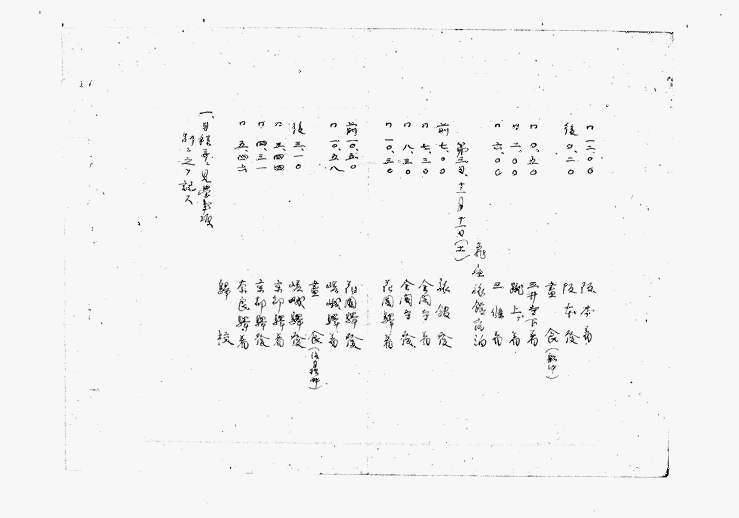 〃一二、〇〇 阪本着
後〇、二〇 阪本發
晝食(船中)
〃〇、五〇 三井寺下着
〃二、〇〇 蹴上着
〃六、〇〇 旅館着
龜屋旅館宿泊
第三日、十一月十一日(土)
前七、〇〇 旅館發
〃七、三〇 金閣寺着
〃八、三〇 金閣寺發
〃一〇、三〇 花園驛着
前一〇、五〇 花園驛發
〃一〇、五八 嵯峨驛着
晝食
後三、一〇 嵯峨驛發
〃三、四四 京都驛着
〃四、三一 京都驛發
〃五、四六 奈良驛着
歸校
一、日程表、見學事項
別ニ之ヲ記入